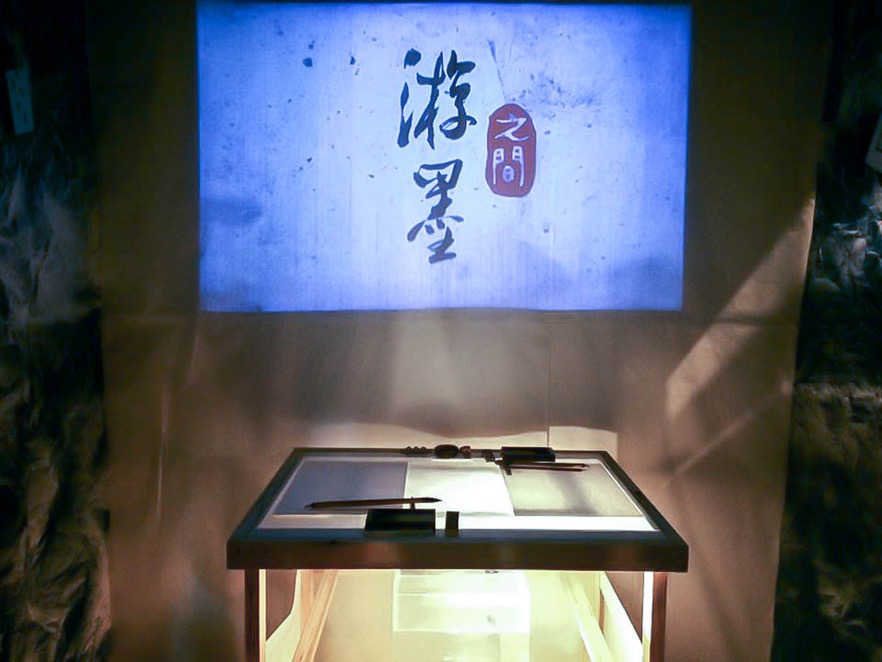 游墨
之間